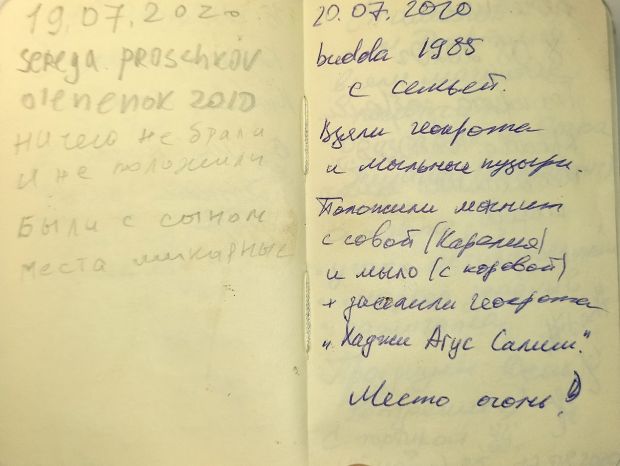 19.07.2020
serega proschkov
olenenok 2010
Ничего не брали
и не положили
Были с сыном
места шикарные
20.07.2020
budda 1985
с семьей.
Взяли геокрота
и мыльные пузыри.
Положили магнит
с совой (Карелия)
и мыло (с коровой)
+ геокрота
"Хаджи Агус Салим".
Место огонь!